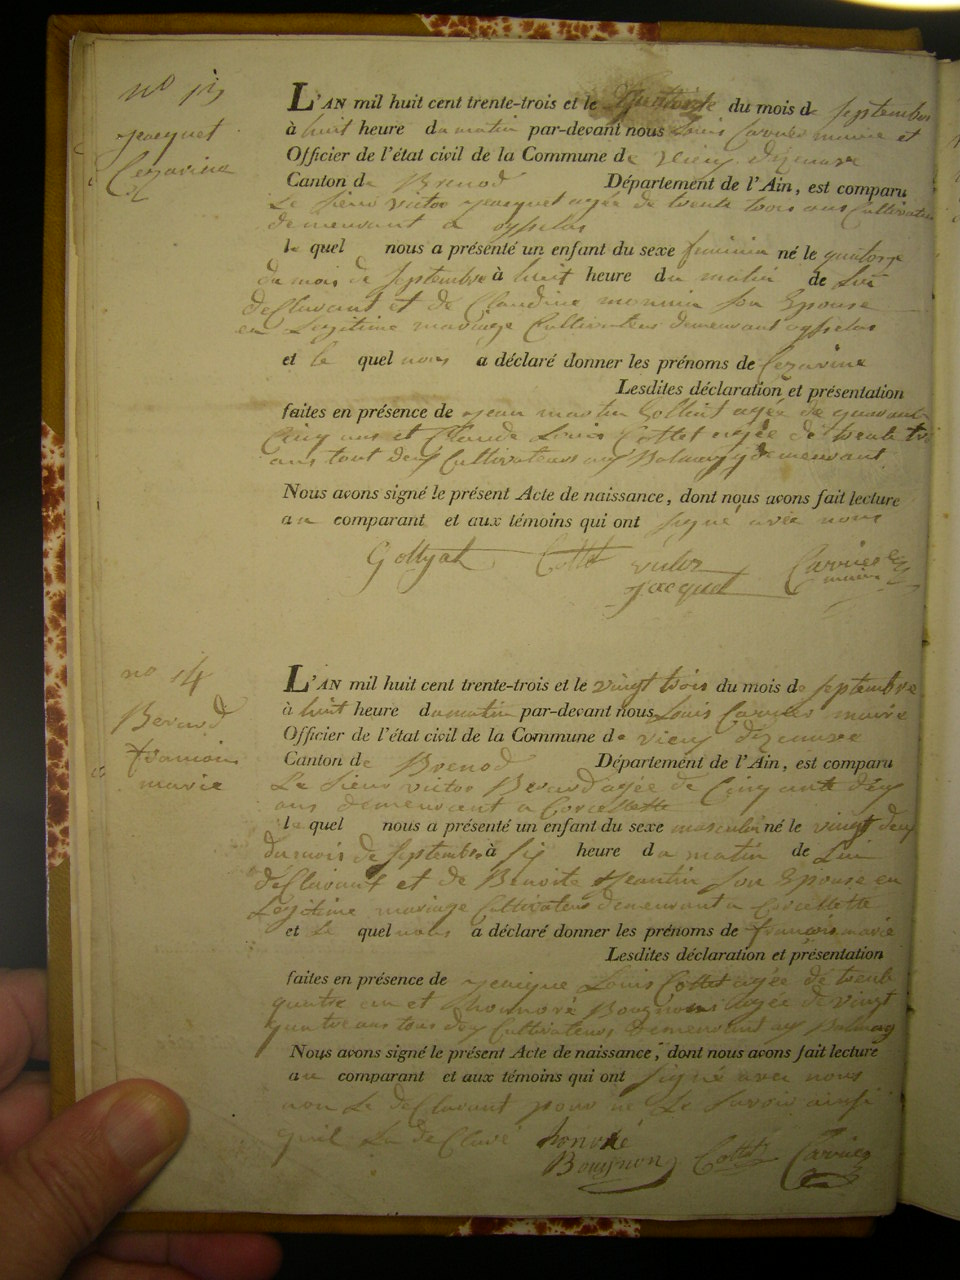 n° 13
Jacquet
Cezarine
L'AN mil huit cent trente-trois et le quatorze du mois de septembre
à huit heure du matin par-devant nous Louis Carrier maire et
Officier de l'état civil de la Commune de vieu d'izenave
Canton de Brenod Département de l'Ain, est comparu
Le sieur victor Jacquet agée de trente trois ans Cultivateur
demeurant a
le quel nous a présenté un enfant du sexe feminin né le quatorze
du mois de septembre à huit heure du matin de Lui
desClarant et de Claudine monnin son Epouse
en Legitime mariage Cultivateur demeurant
et le quel nous a déclaré donner les prénoms de Cezarine
Lesdites déclaration et présentation
faites en présence de Jean martin agée de quarante
Cinq ans et Claude Louis Cottet agée de trente
ans tout deux Cultivateurs aux Balmay y demeurant
Nous avons signé le présent Acte de naissance, dont nous avons fait lecture
au comparant et aux témoins qui ont signé avec nous
Cottet victor Jacquet Carrier maire
n° 14
Berard
francois
marie
L'AN mil huit cent trente-trois et le vingt trois du mois de septembre
à huit heure du matin par-devant nous Louis Carrier maire
Officier de l'état civil de la Commune de vieux d'izenave
Canton de Brenod Département de l'Ain, est comparu
Le sieur victor Berard agée de Cinquante deux
ans demeurant a Corcellette
le quel nous a présenté un enfant du sexe masculin né le vingt deux
du mois de septembre à six heure du matin de Lui
desClarant et de Benoite Jeantin son Epouse en
Legitime mariage Cultivateur demeurant a Corcellette
et le quel nous a déclaré donner les prénoms de francois marie
Lesdites déclaration et présentation
faites en présence de Louis Cottet agée de trente
quatre an et honnoré Bougnon agée de vingt
quatre ans tous deux Cultivateurs demeurant aux Balmay
Nous avons signé le présent Acte de naissance, dont nous avons fait lecture
au comparant et aux témoins qui ont signé avec nous
non Le desClarant pour ne Le savoir ainsi
quil La deClaré honoré
Bougnon Cottet Carrier